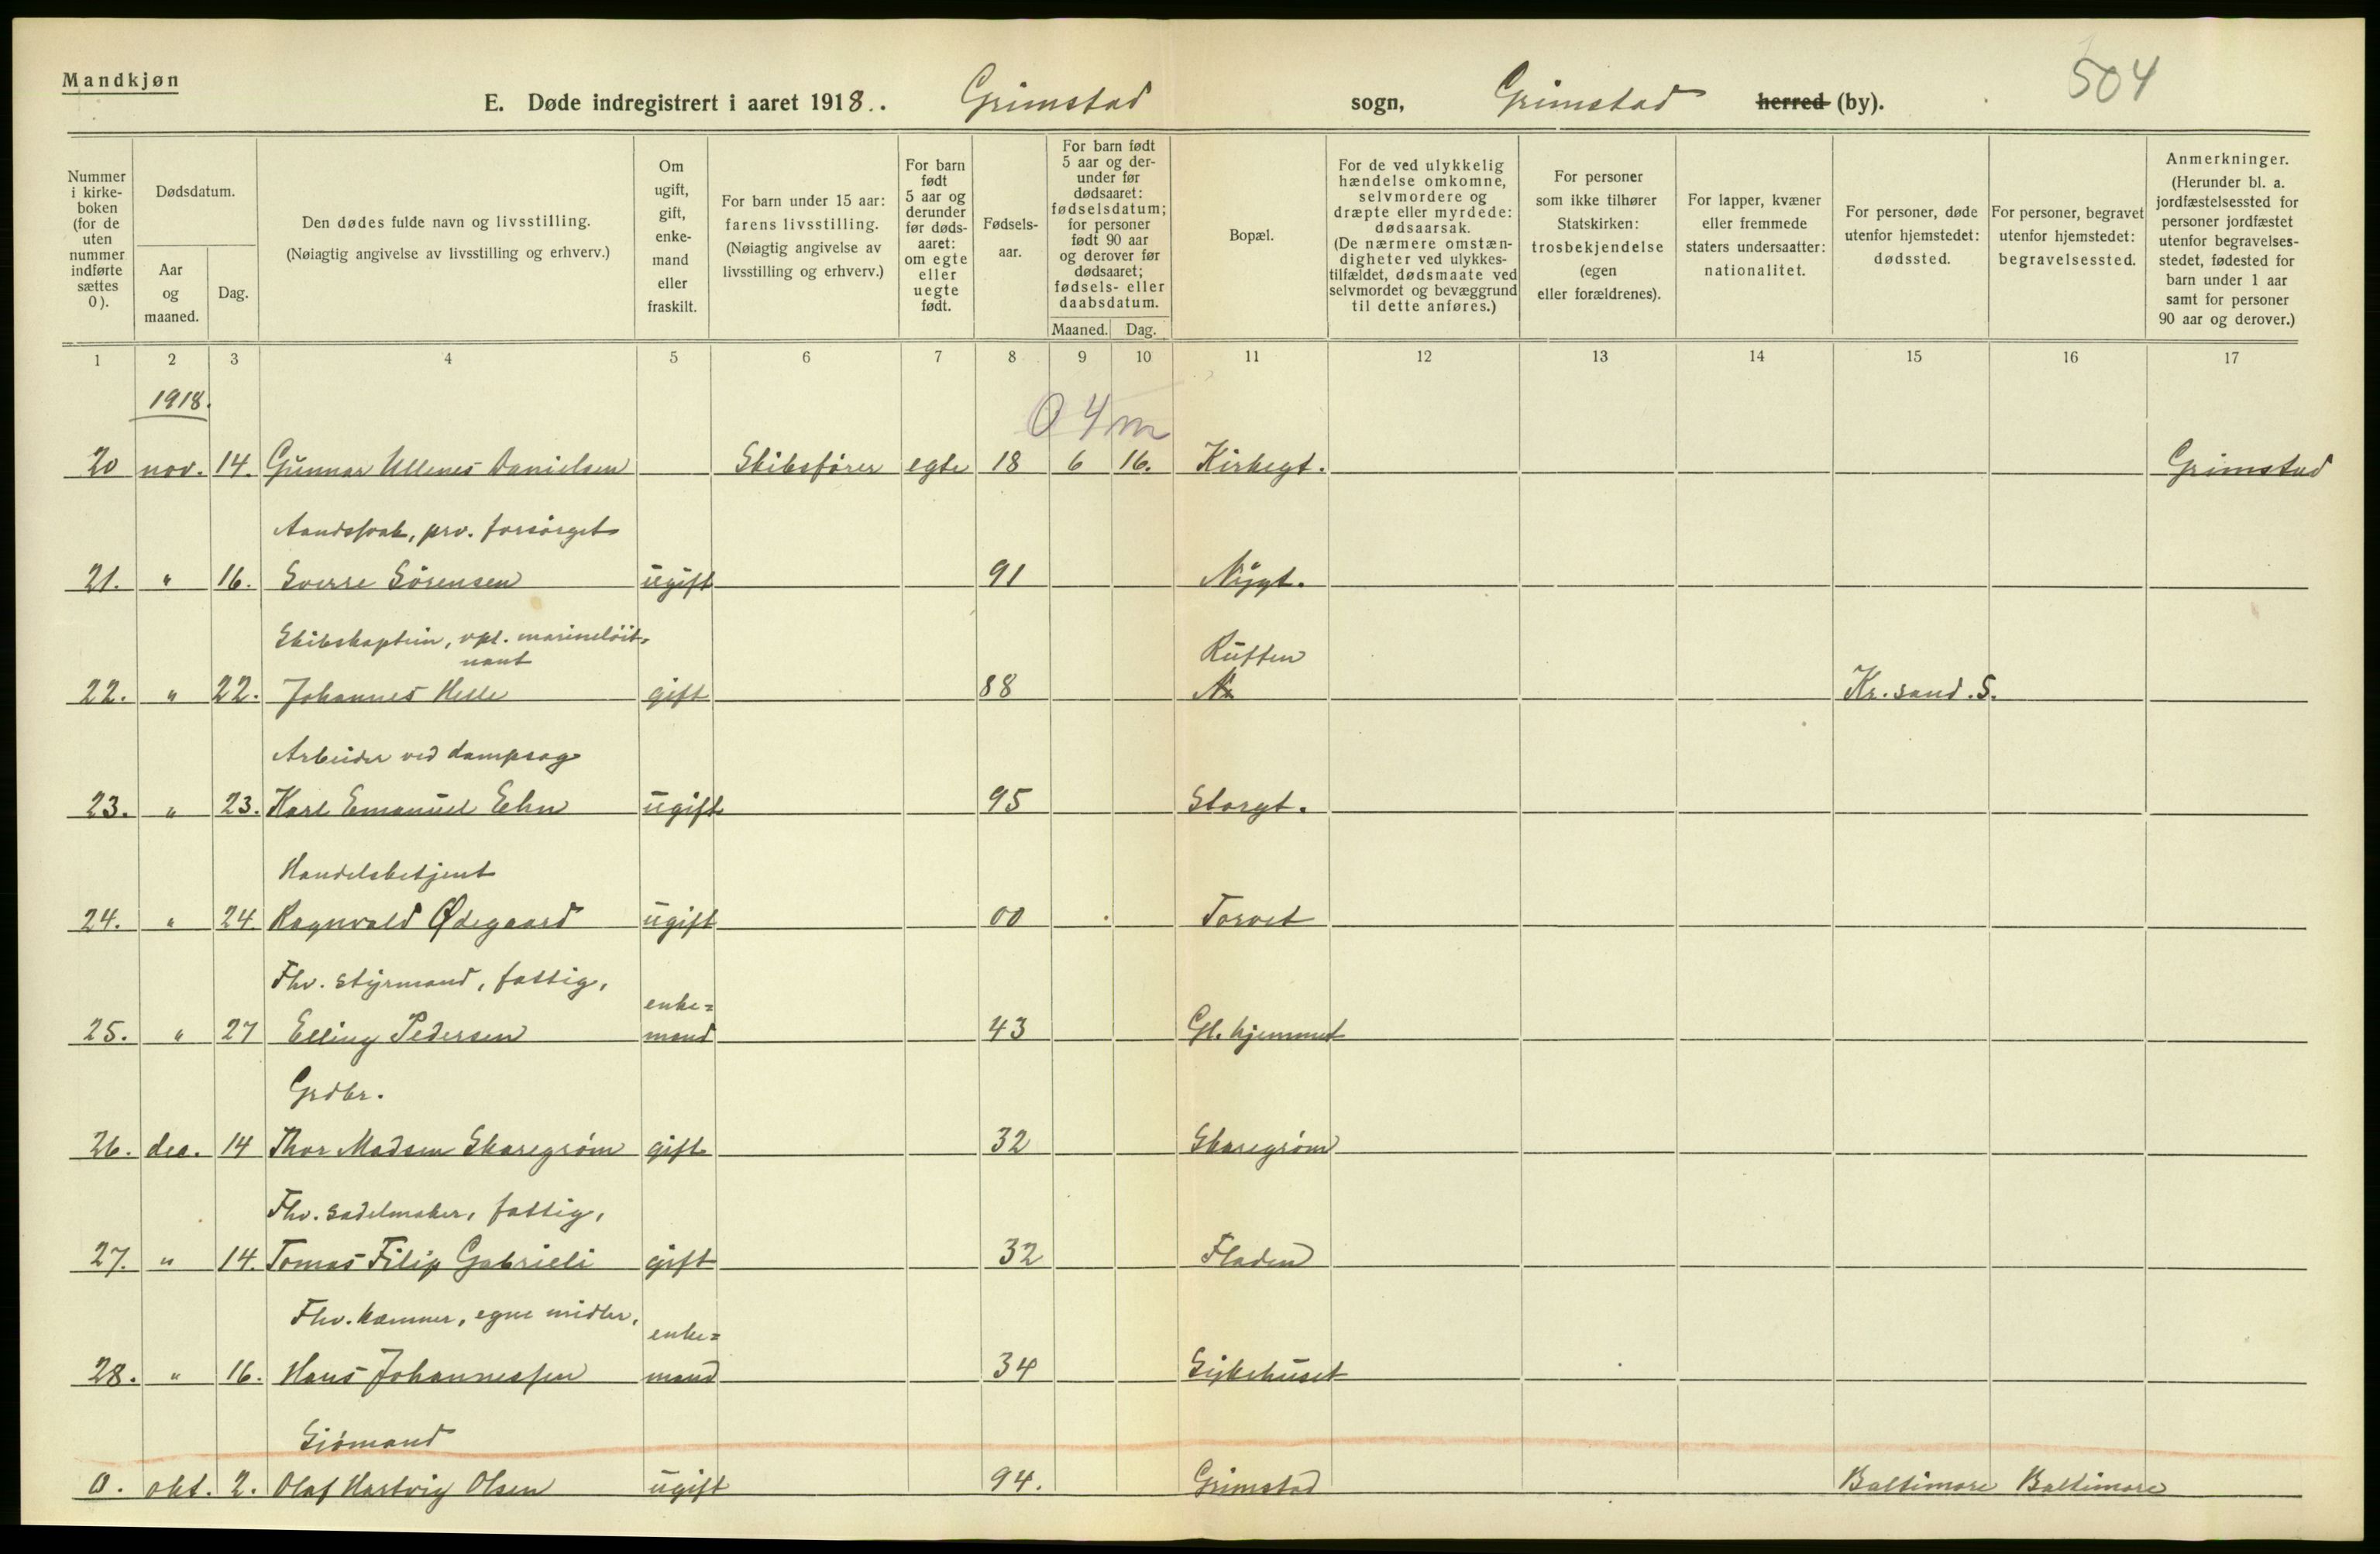 Mandkjøn
504
E. Døde indregistrert i aaret 1918. Grimstad sogn, Grimstad herred (by).
Nummer i kirkeboken (for de uten nummer indførte sættes 0).
Dødsdatum.
Aar og maaned.
Dag.
Den dødes fulde navn og livsstilling.
(Nøiagtig angivelse av livsstilling og erhverv.)
Om ugift, gift, enkemand eller fraskilt.
For barn under 15 aar: farens livsstilling.
(Nøiagtig angivelse av livsstilling og erhverv.)
For barn født 5 aar og derunder før dødsaaret: om egte eller uegte født.
Fødselsaar.
For barn født 5 aar og derunder før dødsaaret: fødselsdatum; for personer født 90 aar og derover før dødsaaret; fødsels- eller daabsdatum.
Maaned. Dag.
Bopæl.
For de ved ulykkelig hændelse omkomne, selvmordere og dræpte eller myrdede: dødsaarsak.
(De nærmere omstændigheter ved ulykkestilfældet, dødsmaate ved selvmordet og bevæggrund til dette anføres.)
For personer som ikke tilhører Statskirken: trosbekjendelse (egen eller forældrenes).
For lapper, kvæner eller fremmede staters undersaatter: nationalitet.
For personer, døde utenfor hjemstedet: dødssted.
For personer, begravet utenfor hjemstedet: begravelsessted.
Anmerkninger.
(Herunder bl. a. jordfæstelsessted for personer jordfæstet utenfor begravelsesstedet, fødested for barn under 1 aar samt for personer 90 aar og derover.)
1 2 3 4 5 6 7 8 9 10 11 12 13 14 15 16 17
1918.
0 4 m
20 nov. 14. Gunnar Ullenes Danielsen Skibsfører egte 18 6 16. Kirkegt. Grimstad
Aandssvak, prv. forsørget
21. " 16. Sverre Sørensen ugift 91 Nygt.
Skibskaptein, vpl. marineløit=
nant
Ruften
22. " 22. Johannes Helle gift 88 Kr.sand.S.
Arbeider ved dampsag
23. " 23. Karl Emanuel Ehn ugift 95 Storgt.
Handelsbetjent
24. " 24. Ragnvald Ødegaard ugift 00 Torvet
Fhv. styrmand, fattig,
enke=
25. " 27 Elling Pedersen mand 43 Gl. hjemmet
Grdbr.
26. dec. 14 Thor Madsen Skaregrøm gift 32 Skaregrøm
Fhv. sadelmaker, fattig,
27. " 14. Tomas Filip Gabrieli gift 32 Fladen
Fhv. kæmner, egne midler,
enke=
28. " 16. Hans Johannessen mand 34 Sykehuset
Sjømand
0. okt. 2. Olaf Hartvig Olsen ugift 94. Grimstad Baltimore Baltimore